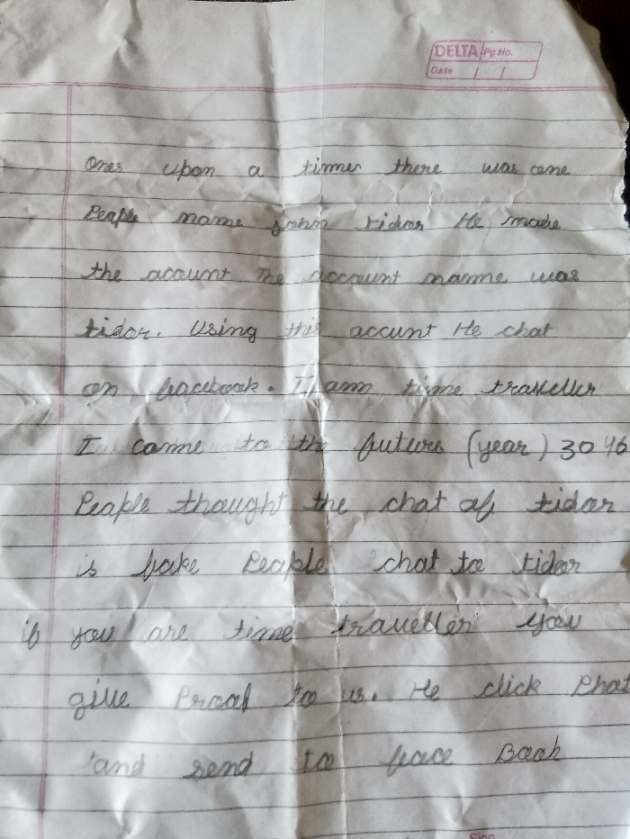 DELTA Pg No.
Date / /
Ones upon a times there was one
People name john tidor He made
the acount The account namme was
tidor. Using this accunt He chat
on facebook. I amm time traveller
I came to the future (year) 3046
People thought the chat of tidor
is fake People chat to tidor
if you are time traveller you
give Proof to us. He click Phot
and send to face Book